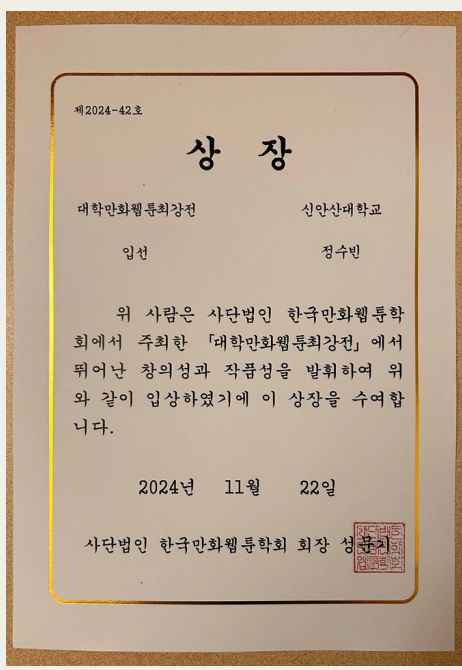 제2024-42호
상 장
대학만화웹툰최강전 신안산대학교
입선 정수빈
위 사람은 사단법인 한국만화웹툰학
회에서 주최한 「대학만화웹툰최강전」에서
뛰어난 창의성과 작품성을 발휘하여 위
와 같이 입상하였기에 이 상장을 수여합
니다.
2024년 11월 22일
사단법인 한국만화웹툰학회 회장 성문기